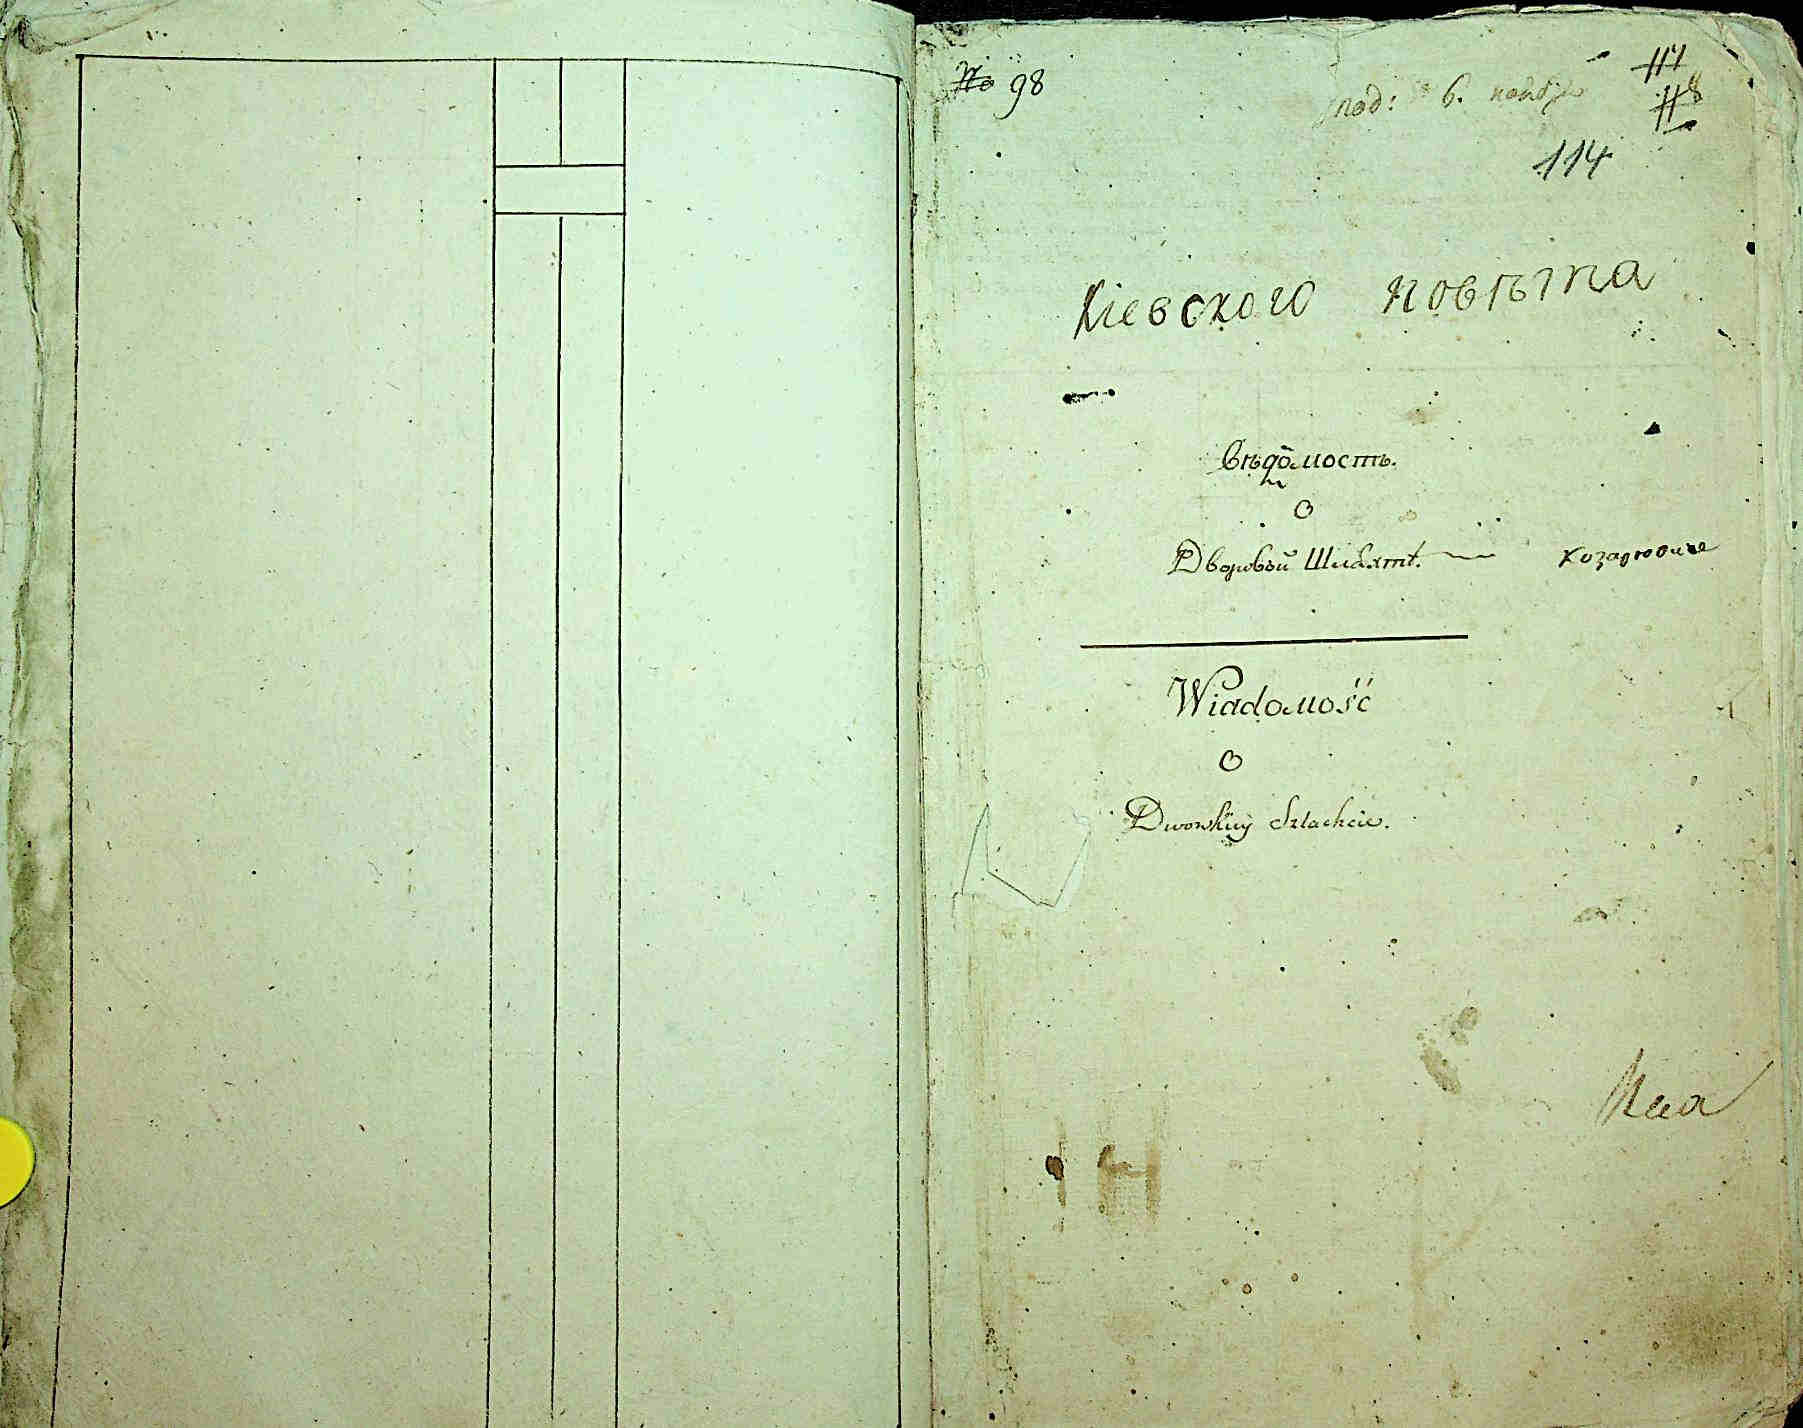 No 98
под: 6. ноября
117
118
114
Кіевского повѣта
Вѣдомость.
О
Дворовой Шляхтѣ.
Wiadomość
O
Dworskiey Szlachcie.